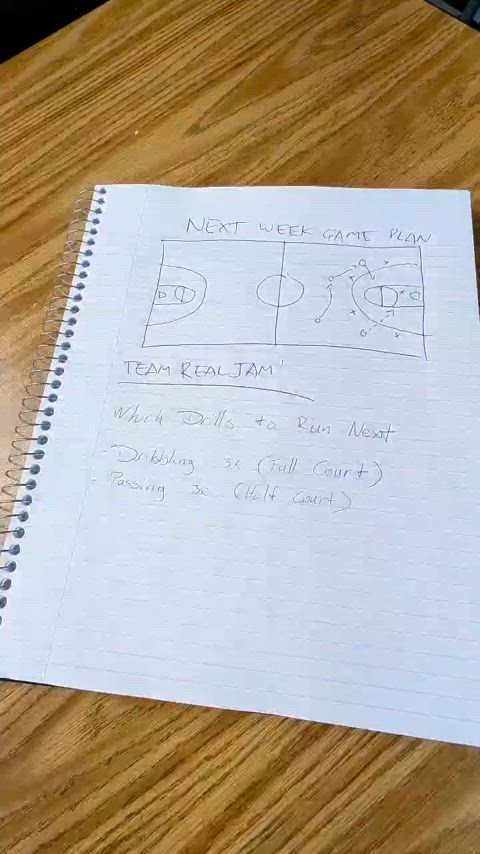 NEXT WEEK GAME PLAN
TEAM REAL JAM'
Which Drills to Run Next
- Dribbling 3x (Full Court)
- Passing 3x (Half Court)